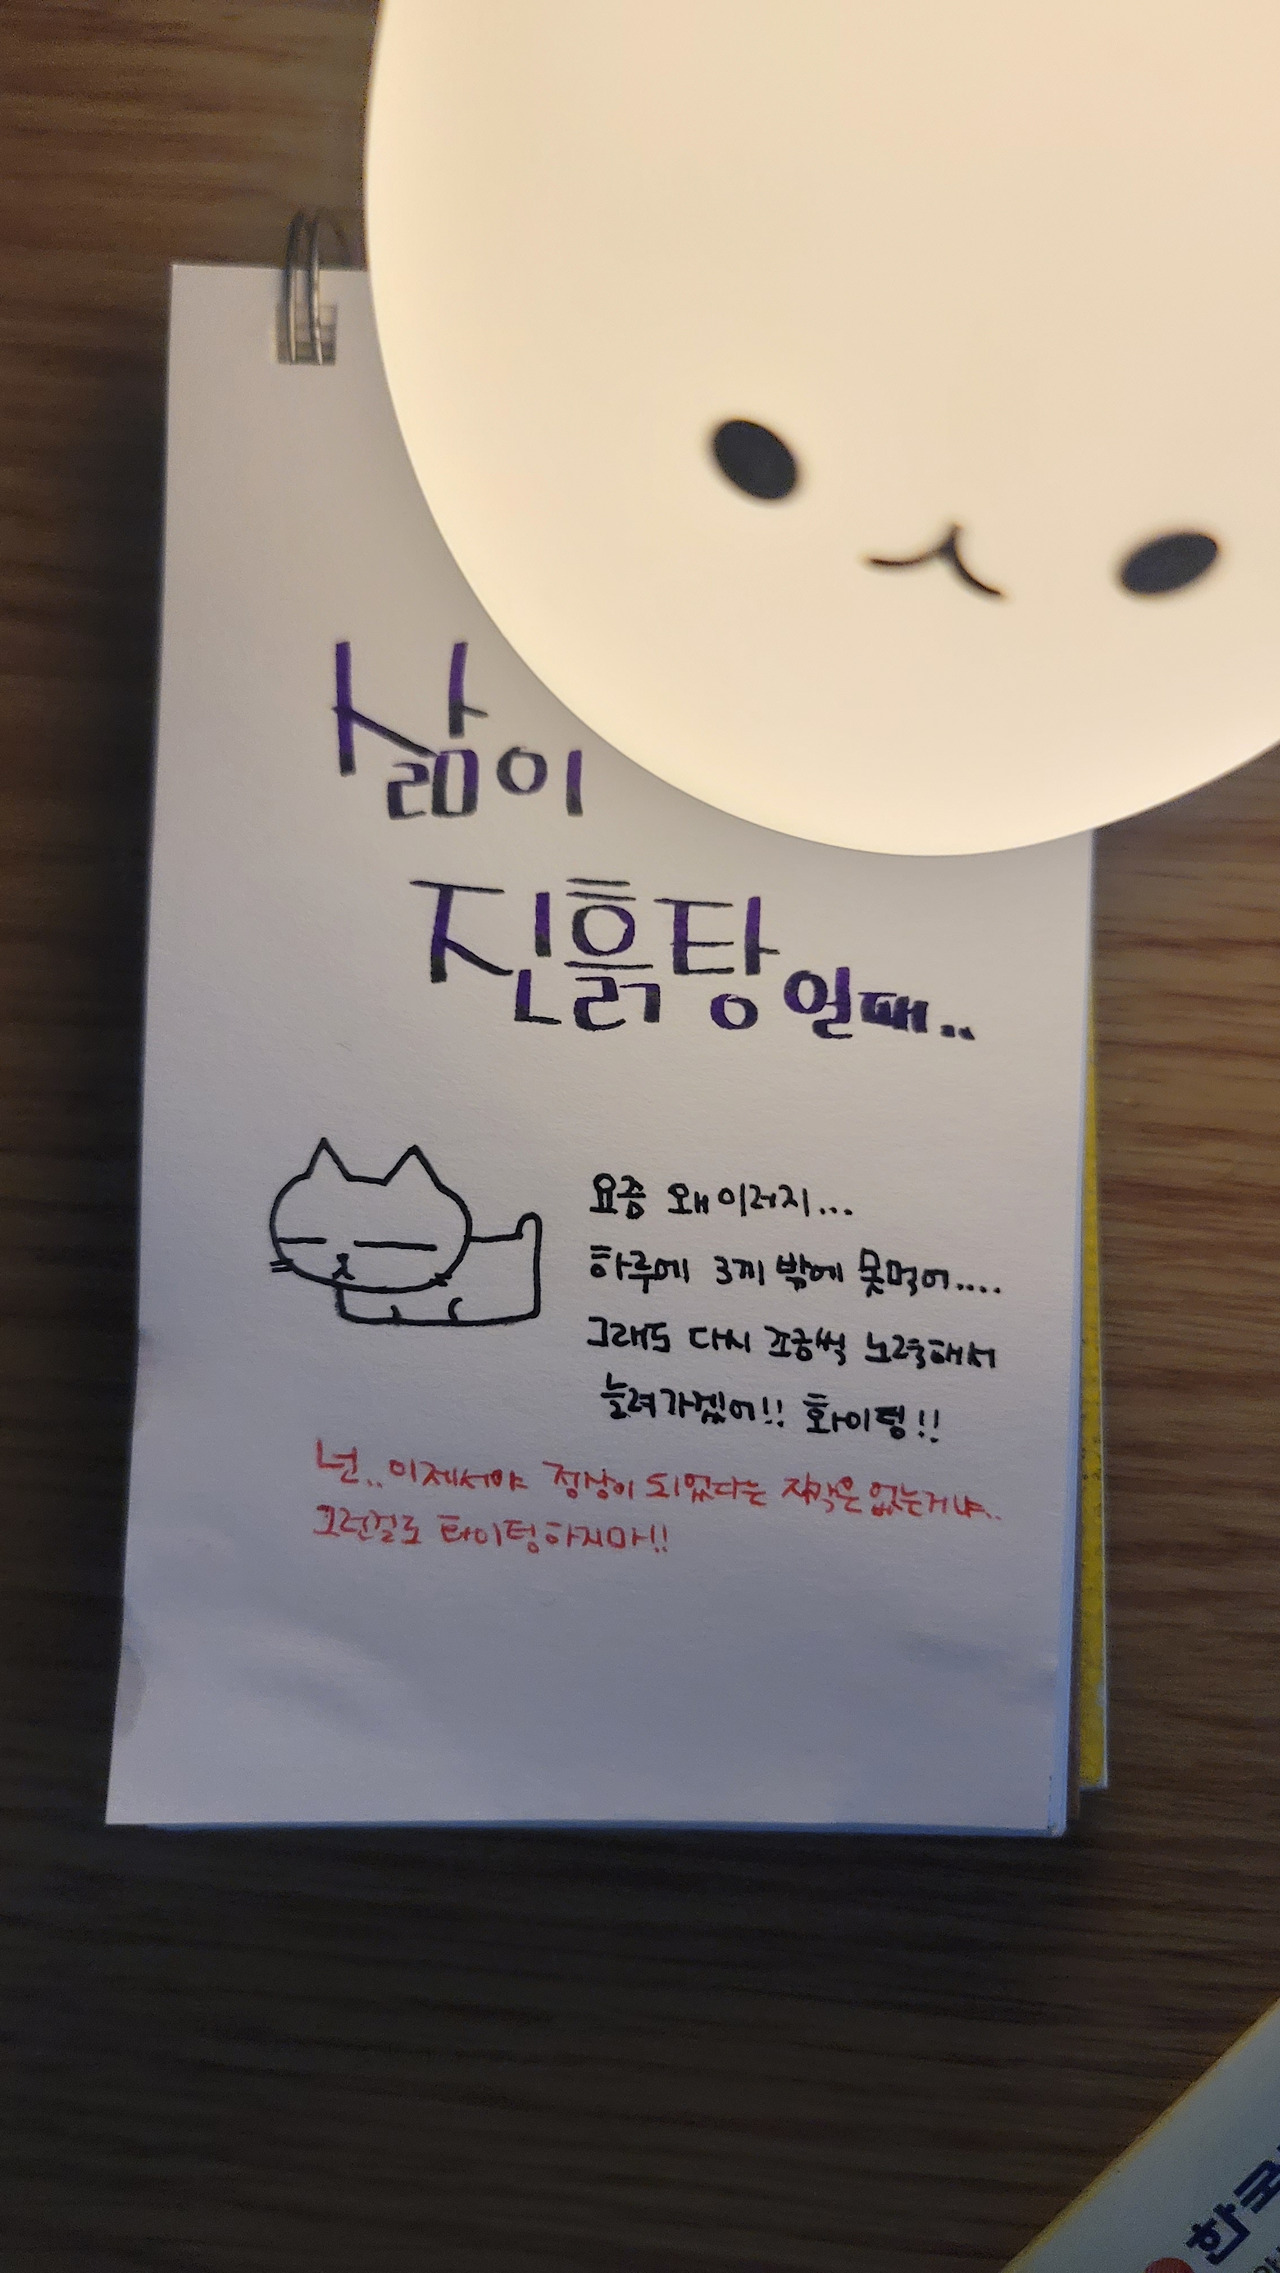 삶이
진흙탕일때..
요즘 왜이러지...
하루에 3끼 밖에 못먹어....
그래도 다시 조금씩 노력해서
늘려가겠어!! 화이팅!!
넌.. 이제서야 정상이 되었다는 자각은 없는거냐..
그런걸로 화이팅하지마!!
한국